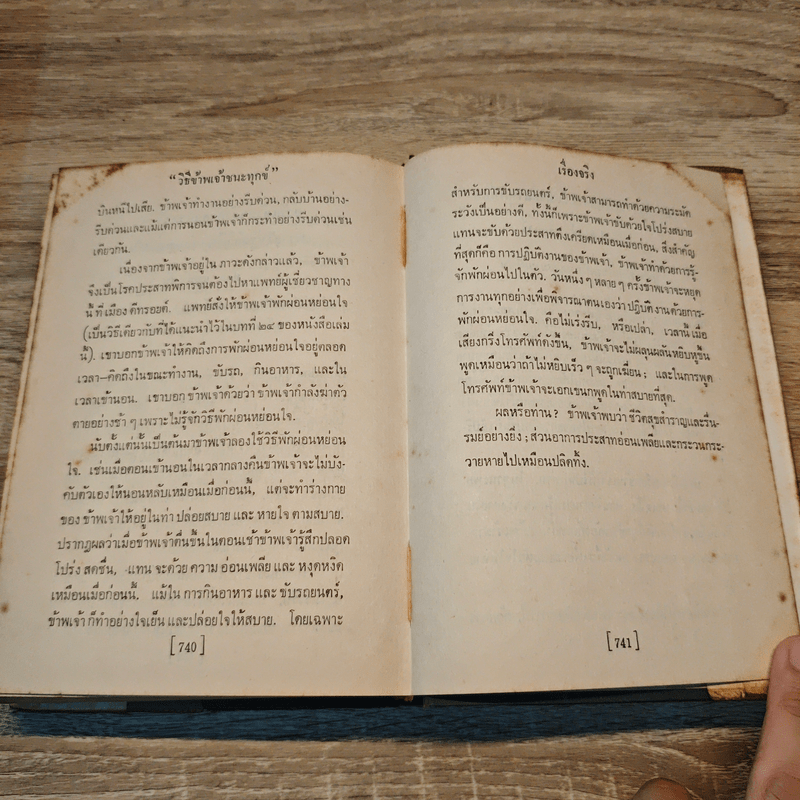 "วิธีข้าพเจ้าชนะทุกข์"
บินหนีไปเสีย. ข้าพเจ้าทำงานอย่างรีบด่วน, กลับบ้านอย่าง-
รีบด่วนและแม้แต่การนอนข้าพเจ้าก็กระทำอย่างรีบด่วนเช่น
เดียวกัน.
เนื่องจากข้าพเจ้าอยู่ใน ภาวะดังกล่าวแล้ว, ข้าพเจ้า
จึงเป็นโรคประสาทพิการจนต้องไปหาแพทย์ผู้เชี่ยวชาญทาง
นี้ ที่ เมือง ดีทรอยต์. แพทย์สั่งให้ข้าพเจ้าพักผ่อนหย่อนใจ
(เป็นวิธีเดียวกับที่ได้แนะนำไว้ในบทที่ ๒๔ ของหนังสือเล่ม
นี้). เขาบอกข้าพเจ้าให้คิดถึงการพักผ่อนหย่อนใจอยู่ตลอด
เวลา—คิดถึงในขณะทำงาน, ขับรถ, กินอาหาร, และใน
เวลาเข้านอน. เขาบอก ข้าพเจ้าด้วยว่า ข้าพเจ้ากำลังฆ่าตัว
ตายอย่างช้า ๆ เพราะไม่รู้จักวิธีพักผ่อนหย่อนใจ.
นับตั้งแต่นั้นเป็นต้นมาข้าพเจ้าลองใช้วิธีพักผ่อนหย่อน
ใจ. เช่นเมื่อตอนเข้านอนในเวลากลางคืนข้าพเจ้าจะไม่บัง-
คับตัวเองให้นอนหลับเหมือนเมื่อก่อนนี้, แต่จะทำร่างกาย
ของ ข้าพเจ้าให้อยู่ในท่า ปล่อยสบาย และ หายใจ ตามสบาย.
ปรากฏผลว่าเมื่อข้าพเจ้าตื่นขึ้นในตอนเช้าข้าพเจ้ารู้สึกปลอด
โปร่ง สดชื่น, แทน จะด้วย ความ อ่อนเพลีย และ หงุดหงิด
เหมือนเมื่อก่อนนี้. แม้ใน การกินอาหาร และ ขับรถยนตร์,
ข้าพเจ้า ก็ทำอย่างใจเย็น และปล่อยใจให้สบาย. โดยเฉพาะ
[740]
เรื่องจริง
สำหรับการขับรถยนตร์, ข้าพเจ้าสามารถทำด้วยความระมัด
ระวังเป็นอย่างดี, ทั้งนี้ก็เพราะข้าพเจ้าขับด้วยใจโปร่งสบาย
แทนจะขับด้วยประสาทตึงเครียดเหมือนเมื่อก่อน. สิ่งสำคัญ
ที่สุดก็คือ การปฏิบัติงานของข้าพเจ้า, ข้าพเจ้าทำด้วยการรู้-
จักพักผ่อนไปในตัว. วันหนึ่ง ๆ หลาย ๆ ครั้งข้าพเจ้าจะหยุด
การงานทุกอย่างเพื่อพิจารณาตนเองว่า ปฏิบัติงานด้วยการ-
พักผ่อนหย่อนใจ. คือไม่เร่งรีบ, หรือเปล่า, เวลานี้ เมื่อ
เสียงกริ่งโทรศัพท์ดังขึ้น, ข้าพเจ้าจะไม่ผลุนผลันหยิบหูขึ้น
พูดเหมือนว่าถ้าไม่หยิบเร็ว ๆ จะถูกเฆี่ยน; และในการพูด
โทรศัพท์ข้าพเจ้าจะเอกเขนกพูดในท่าสบายที่สุด.
ผลหรือท่าน? ข้าพเจ้าพบว่า ชีวิตสุขสำราญและรื่น-
รมย์อย่างยิ่ง; ส่วนอาการประสาทอ่อนเพลียและกระวนกระ-
วายหายไปเหมือนปลิดทิ้ง.
[741]